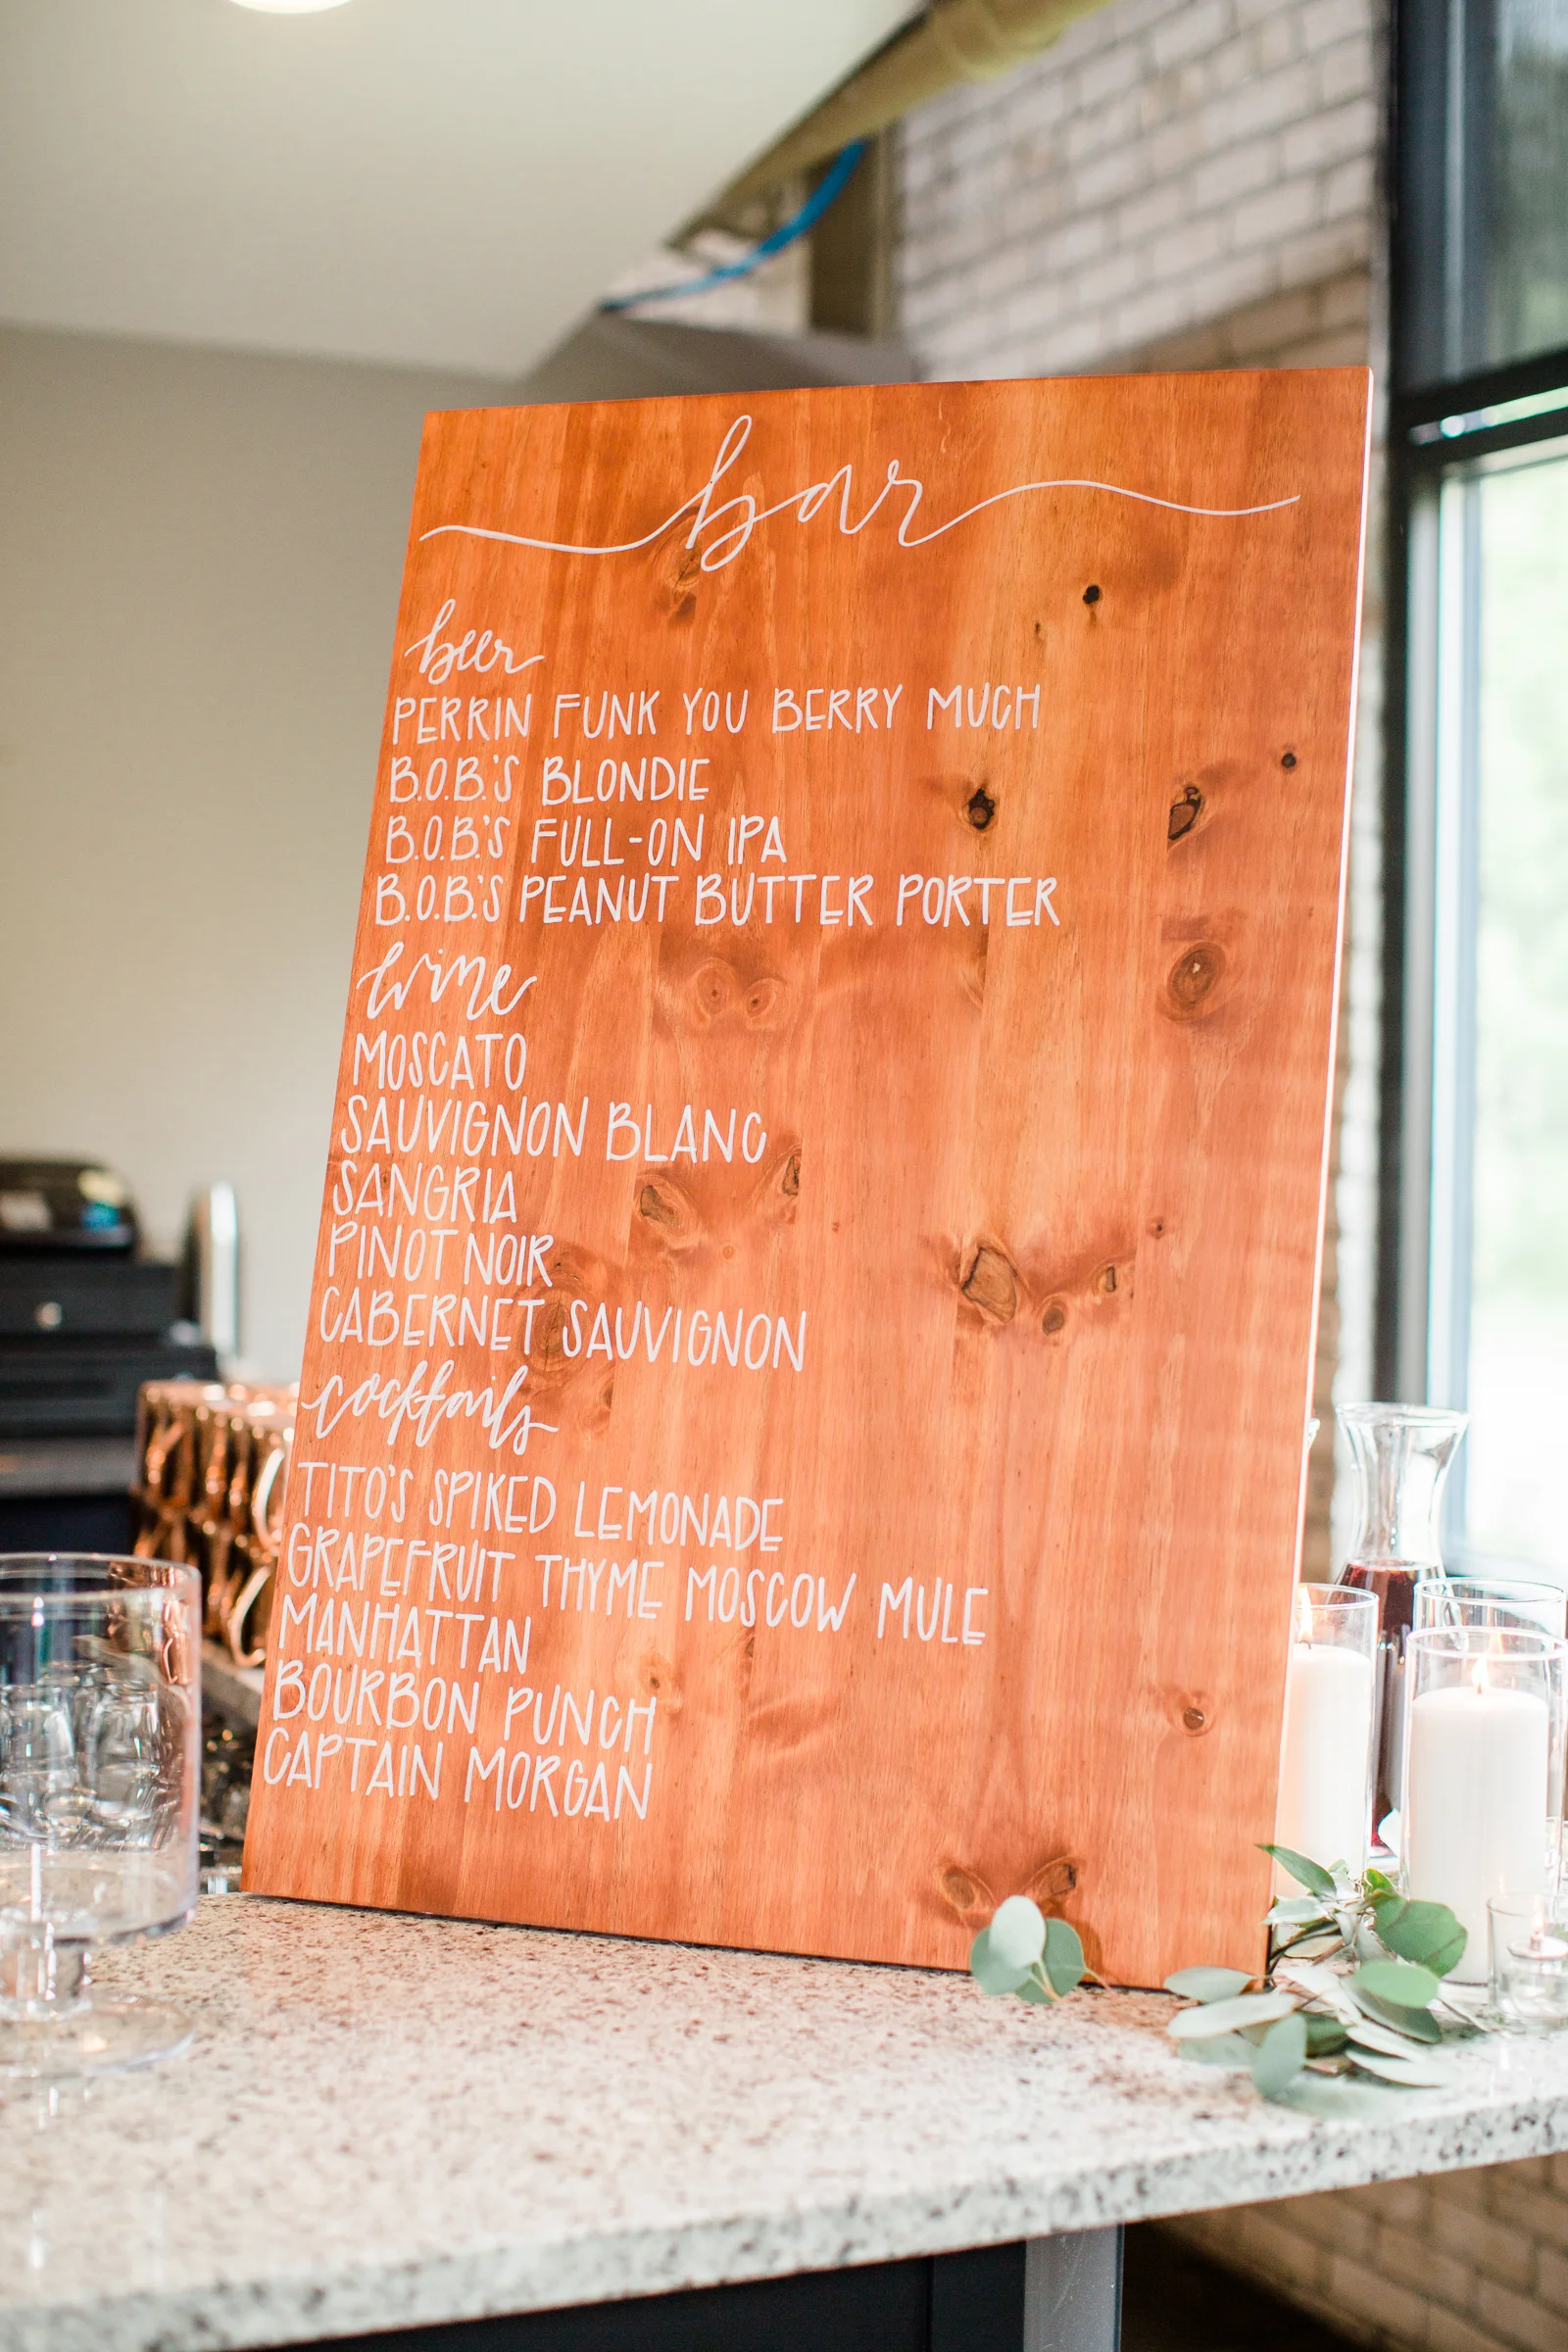 bar
beer
PERRIN FUNK YOU BERRY MUCH
B.O.B.'S BLONDIE
B.O.B.'S FULL-ON IPA
B.O.B.'S PEANUT BUTTER PORTER
wine
MOSCATO
SAUVIGNON BLANC
SANGRIA
PINOT NOIR
CABERNET SAUVIGNON
cocktails
TITO'S SPIKED LEMONADE
GRAPEFRUIT THYME MOSCOW MULE
MANHATTAN
BOURBON PUNCH
CAPTAIN MORGAN